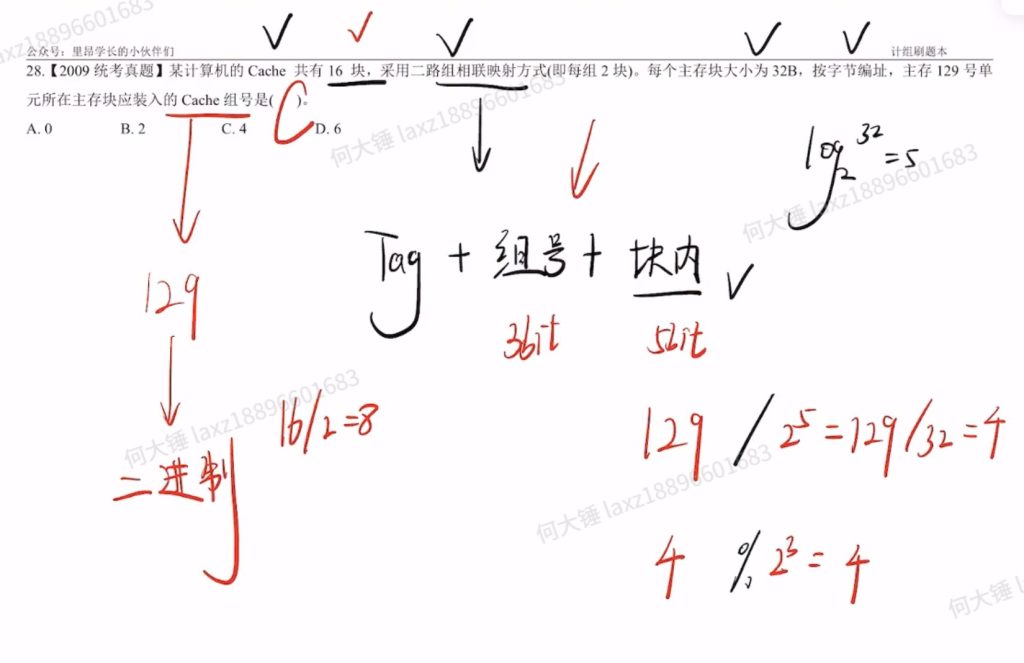 公众号：里昂学长的小伙伴们 计组刷题本
28.【2009 统考真题】某计算机的 Cache 共有 16 块，采用二路组相联映射方式(即每组 2 块)。每个主存块大小为 32B，按字节编址，主存 129 号单
元所在主存块应装入的 Cache 组号是( C )。
A. 0 B. 2 C. 4 D. 6
log₂32=5
Tag + 组号 + 块内
3bit 5bit
129
16/2=8
129 / 2⁵=129/32=4
二进制
4 % 2³= 4
何大锤 laxz18896601683
何大锤 laxz18896601683
何大锤 laxz18896601683
何大锤 laxz18896601683
laxz18896601683
何大锤 l